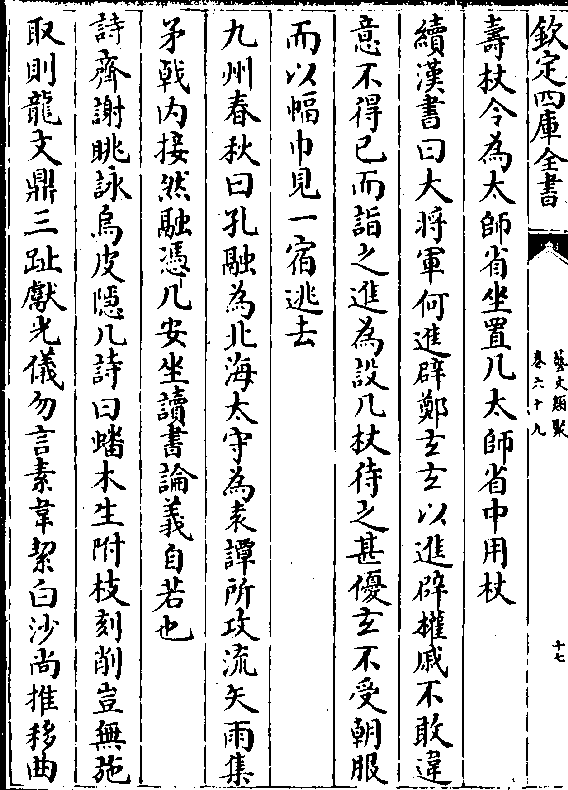 欽定四庫全書
藝文類聚
卷六十九
十七
壽杖令為太師省坐置几太師省中用杖
續漢書曰大將軍何進辟鄭玄玄以進辟權戚不敢違
意不得已而詣之進為設几杖待之甚優玄不受朝服
而以幅巾見一宿逃去
九州春秋曰孔融為北海太守為袁譚所攻流矢雨集
矛戟内接然融憑几安坐讀書論義自若也
詩齊謝眺詠烏皮隱几詩曰蟠木生附枝刻削豈無施
取則龍文鼎三趾獻光儀勿言素韋絜白沙尚推移曲